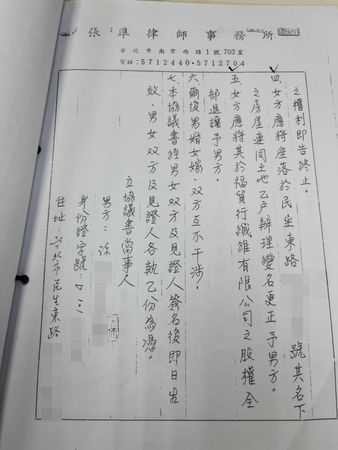 張準律師事務所
台北市南京西路1號703室
電話：5712440・5712704
之權利即告終止。
四、女方應將座落於民生東路 號其名下
之房屋連同土地乙戶辦理變名更正予男方。
五、女方應將其於福貿行纖維有限公司之股權全
部退讓予男方。
六、爾後男婚女嫁，双方互不干涉。
七、本協議書經男女双方及見證人簽名後即日生
效，男女双方及見證人各執乙份為憑。
立協議書當事人
男方：
身份證字號：
住址：台北市民生東路